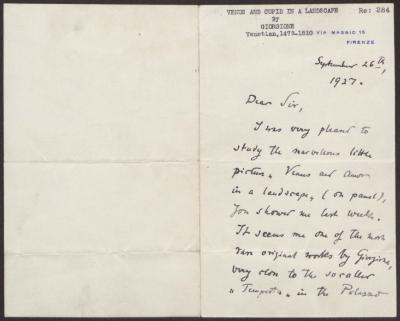 VENUS AND CUPID IN A LANDSCAPE Re: 284
by
GIORGIONE
Venetian, 1478-1510 VIA MAGGIO 15
FIRENZE
September 26th,
1927.
Dear Sir,
I was very pleased to
study the marvellous little
picture „ Venus and Amor
in a landscape„ (on panel),
You showed me last week.
It seems me one of the most
rare original works by Giorgione,
very close to the so called
„ Tempesta „ in the Palazzo